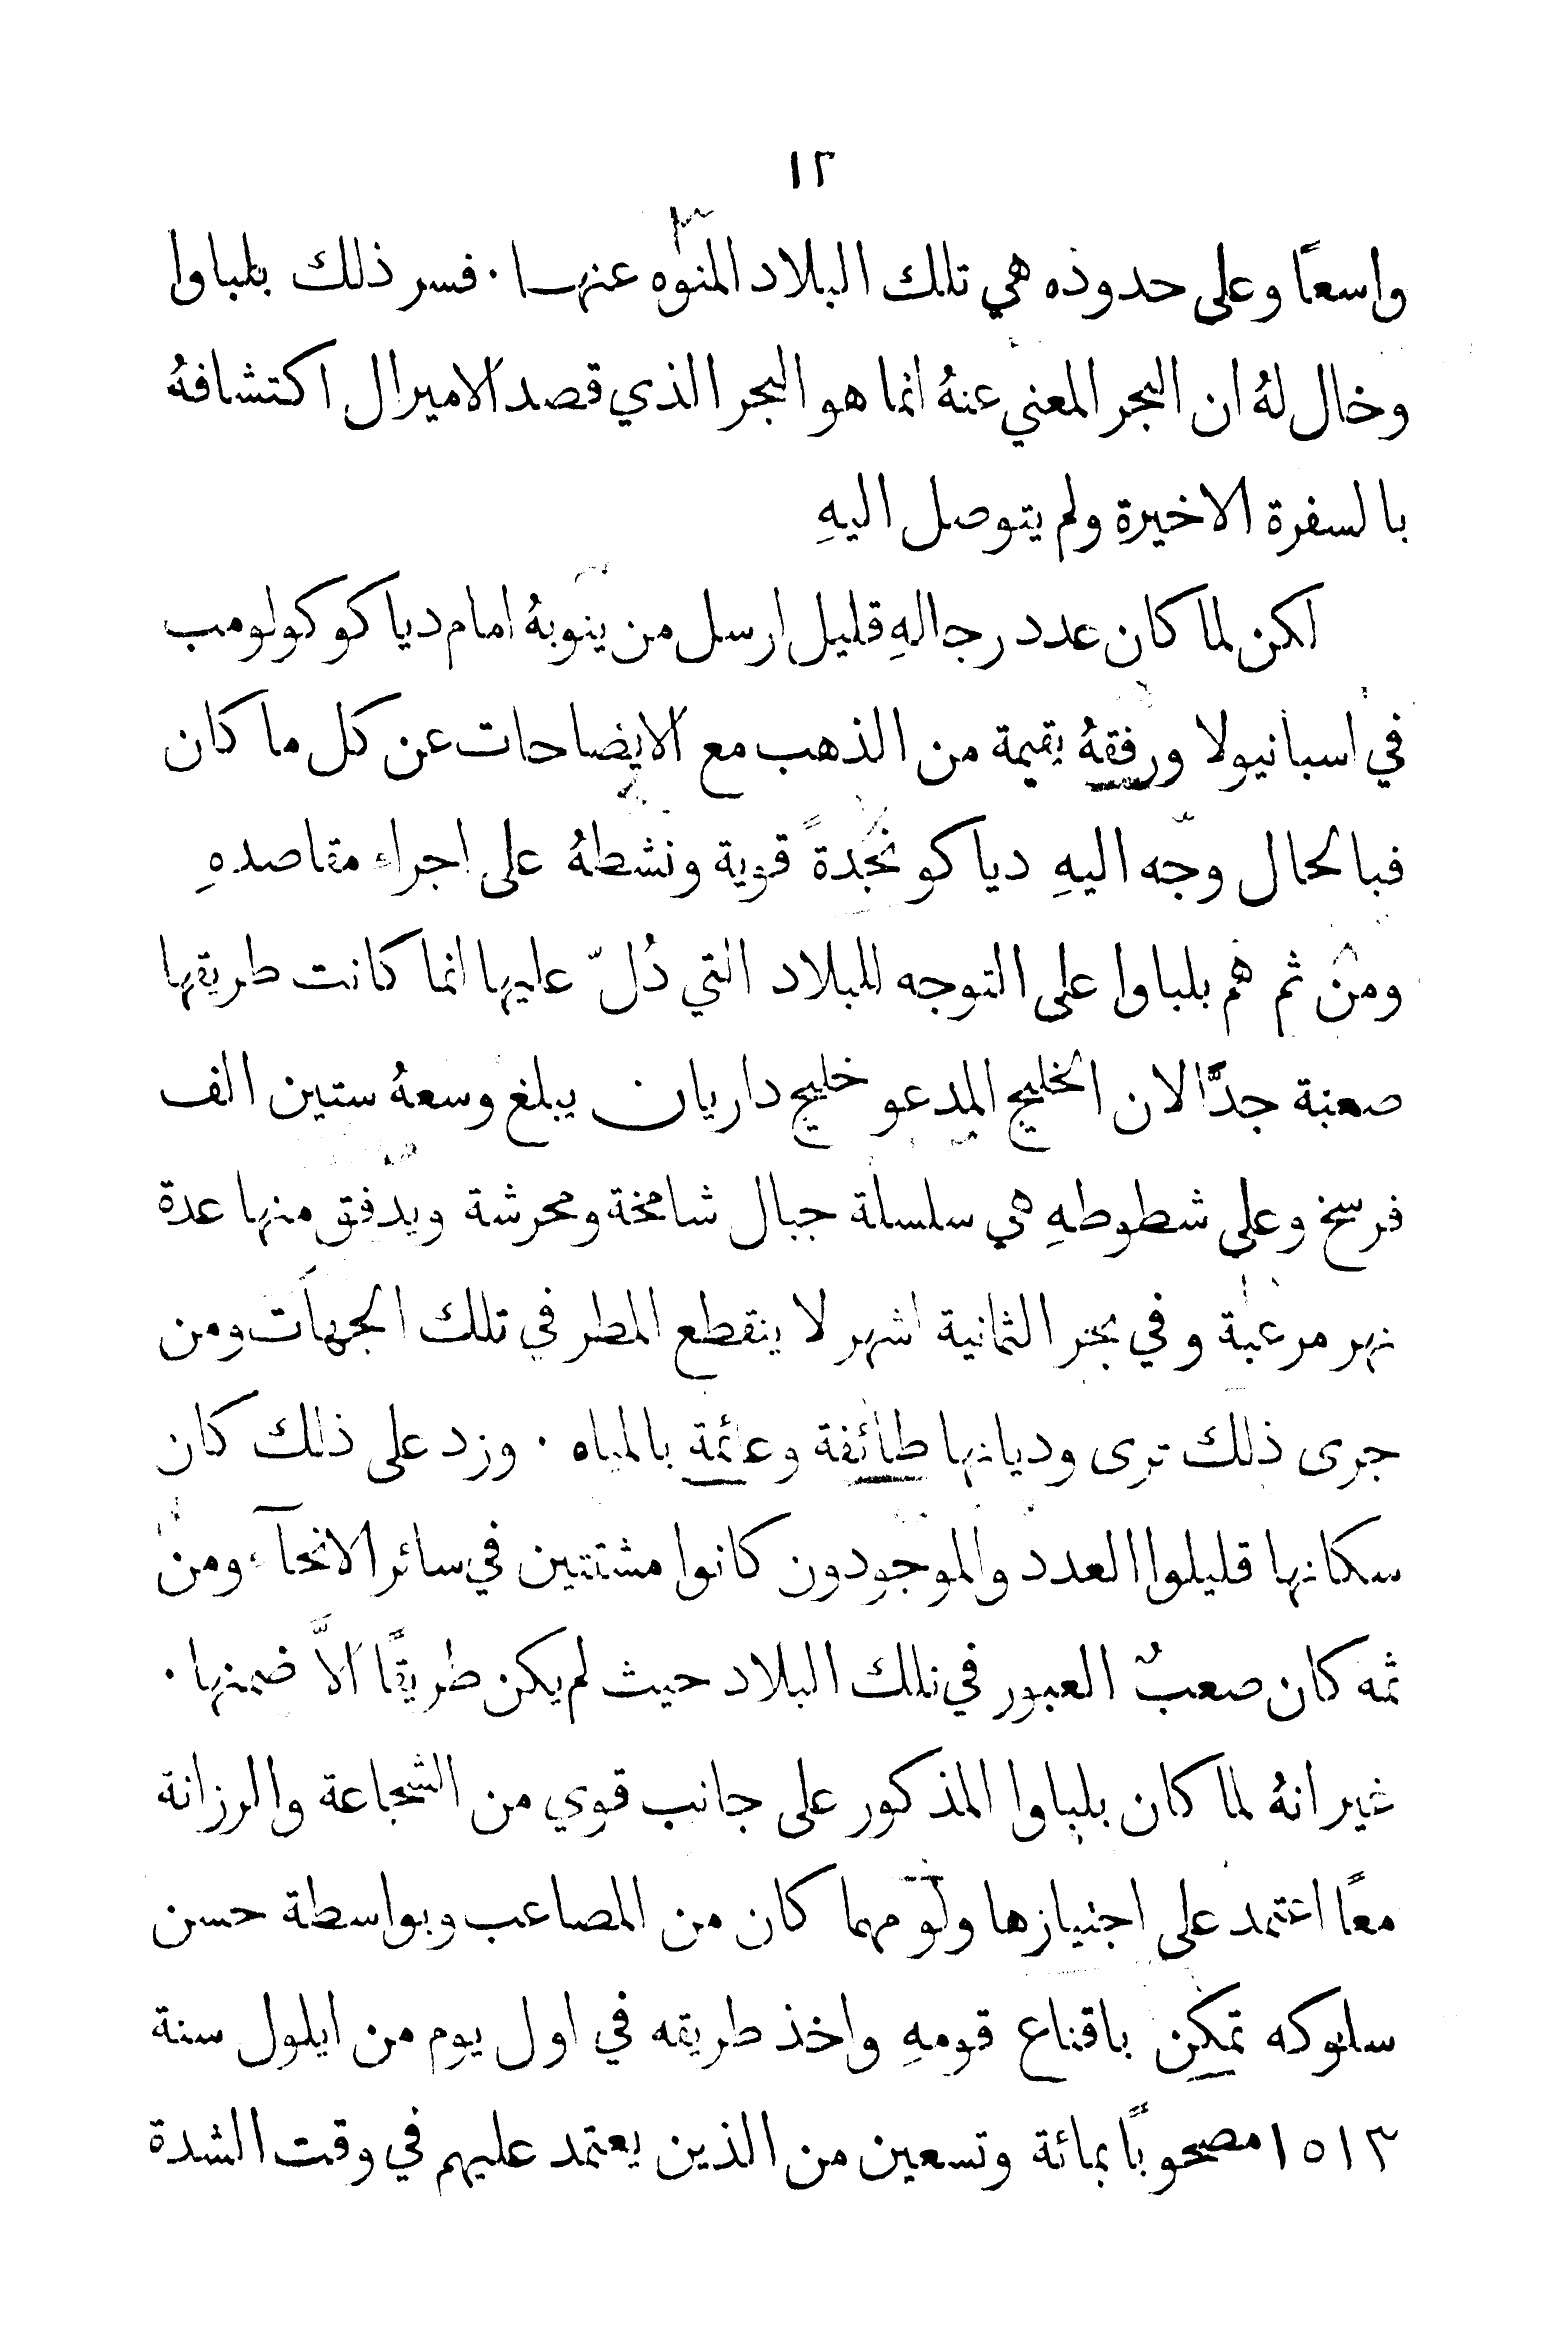 ١٢
واسعًا وعلى حدوده هي تلك البلاد المنوّه عنها . فسر ذلك بلباوا
وخال لهُ ان البحر المعني عنهُ انما هو البحر الذي قصد الاميرال اكتشافهُ
بالسفرة الاخيرة ولم يتوصل اليهِ
لكن لما كان عدد رجالهِ قليل ارسل من ينوبهُ امام دياكو كولومب
في اسبانيولا ورفقهُ بقيمة من الذهب مع الايضاحات عن كل ما كان
فبالحال وجّه اليهِ دياكو نجدةً قوية ونشطهُ على اجراء مقاصدهِ
ومن ثم هم بلباوا على التوجه للبلاد التي دُلّ عليها انما كانت طريقها
صعبة جدًّا لان الخليج المدعو خليج داريان يبلغ وسعهُ ستين الف
فرسخ وعلى شطوطهِ هي سلسلة جبال شامخة ومحرشة ويدفق منها عدة
نهر مرعبة وفي بحر الثمانية اشهر لا ينقطع المطر في تلك الجهات ومن
جرى ذلك ترى وديانها طائفة وعائمة بالمياه . وزد على ذلك كان
سكانها قليلوا العدد والموجودون كانوا مشتتين في سائر الانحآء ومن
ثمه كان صعبٌ العبور في تلك البلاد حيث لم يكن طريقًا الاَّ ضمنها .
غير انهُ لما كان بلباوا المذكور على جانب قوي من الشجاعة والرزانة
معًا اعتمد على اجتيازها ولو مهما كان من المصاعب وبواسطة حسن
سلوكه تمكن باقناع قومهِ واخذ طريقه في اول يوم من ايلول سنة
١٥١٣ مصحوبًا بمائة وتسعين من الذين يعتمد عليهم في وقت الشدة